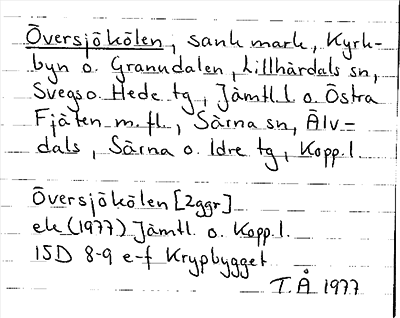 Översjökölen, sank mark, Kyrk-
byn o. Granudalen, Lillhärdals sn,
Svegs o. Hede tg, Jämtl. l o. Östra
Fjäten m. fl., Särna sn, Älv-
dals, Särna o. Idre tg, Kopp. l.
Översjökölen [2ggr]
ek (1977) Jämtl. o. Kopp. l.
15D 8-9 e-f Krypbygget
T. Å 1977